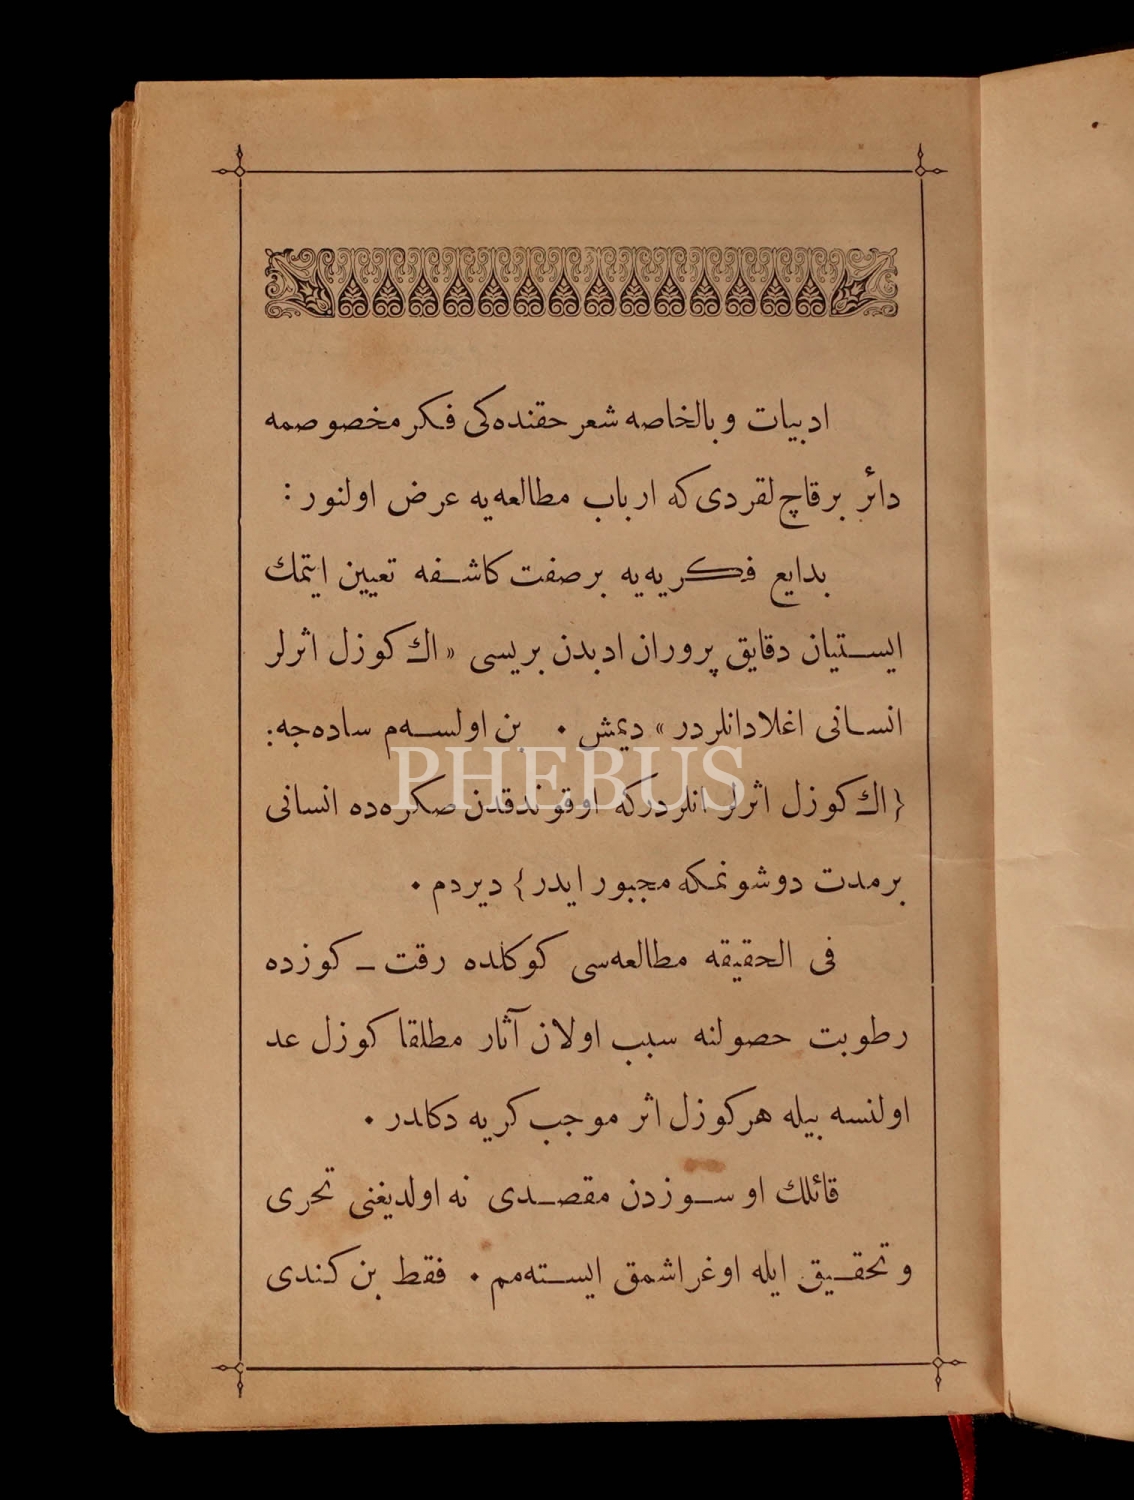 ادبیات و بالخاصه شعر حقنده‌كی فكر مخصوصمه
دائر برقاچ لقردی كه ارباب مطالعه‌یه عرض اولنور :
بدایع فكریه‌یه برصفت كاشفه تعیین ایتمك
ایستیان دقایق پروران ادبدن بریسی « اك كوزل اثرلر
انسانی اغلادانلردر » دیمش . بن اولسه‌م ساده‌جه:
{ اك كوزل اثرلر انلردركه اوقوندقدن صكره‌ده انسانی
برمدت دوشونمكه مجبور ایدر } دیردم .
فی الحقیقه مطالعه‌سی كوكلده رقت ـ كوزده
رطوبت حصولنه سبب اولان آثار مطلقا كوزل عد
اولنسه بیله هركوزل اثر موجب كریه دكلدر .
قائلك او سوزدن مقصدی نه اولدیغنی تحری
و تحقیق ایله اوغراشمق ایسته‌مم . فقط بن كندی
PHEBUS